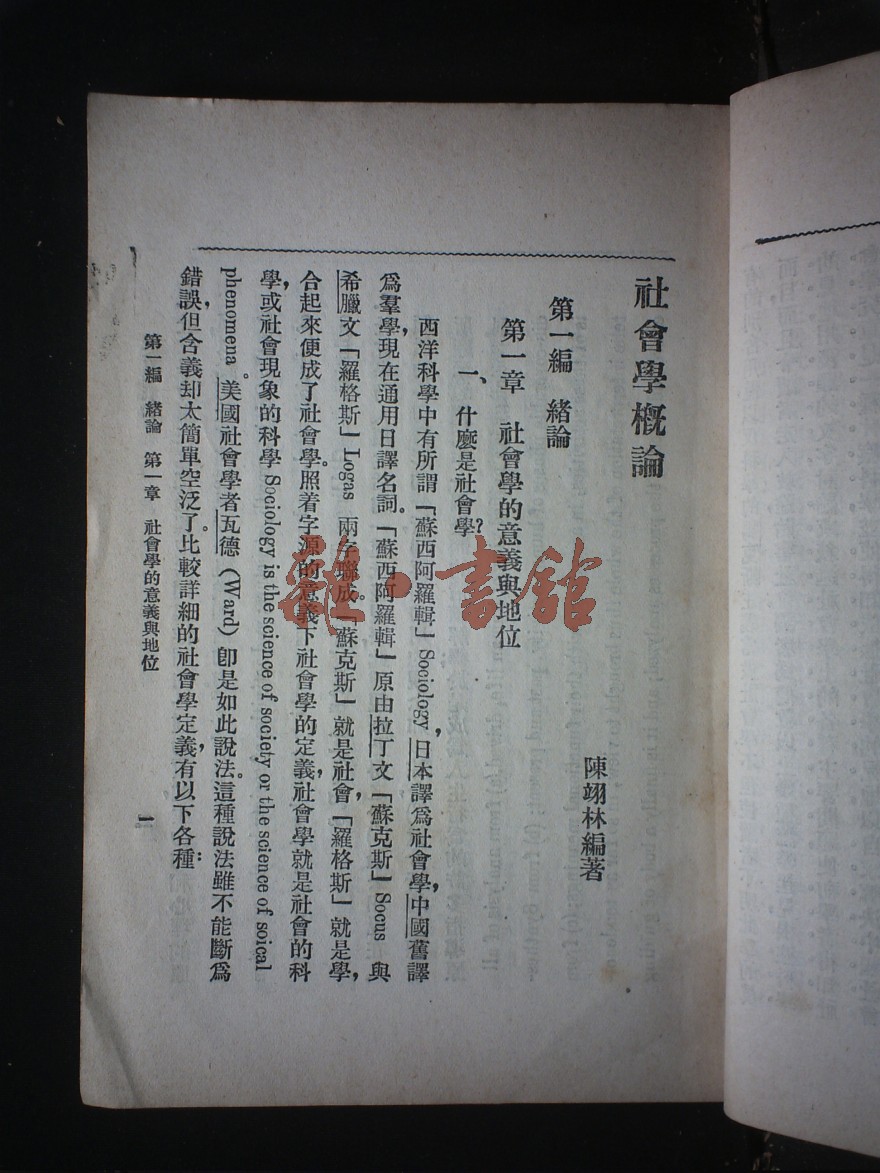 社會學概論
陳翊林編著
第一編　緒論
第一章　社會學的意義與地位
一、什麼是社會學？
西洋科學中有所謂「蘇西阿羅輯」Sociology，日本譯爲社會學，中國舊譯
爲羣學，現在通用日譯名詞。「蘇西阿羅輯」原由拉丁文「蘇克斯」Socus 與
希臘文「羅格斯」Logas 兩字聯成。「蘇克斯」就是社會，「羅格斯」就是學，
合起來便成了社會學。照着字源的意義下社會學的定義，社會學就是社會的科
學，或社會現象的科學 Sociology is the science of society or the science of soical
phenomena。美國社會學者瓦德（Ward）卽是如此說法。這種說法雖不能斷爲
錯誤，但含義却太簡單空泛了。比較詳細的社會學定義，有以下各種：
第一編　緒論　第一章　社會學的意義與地位
一
雜·書館